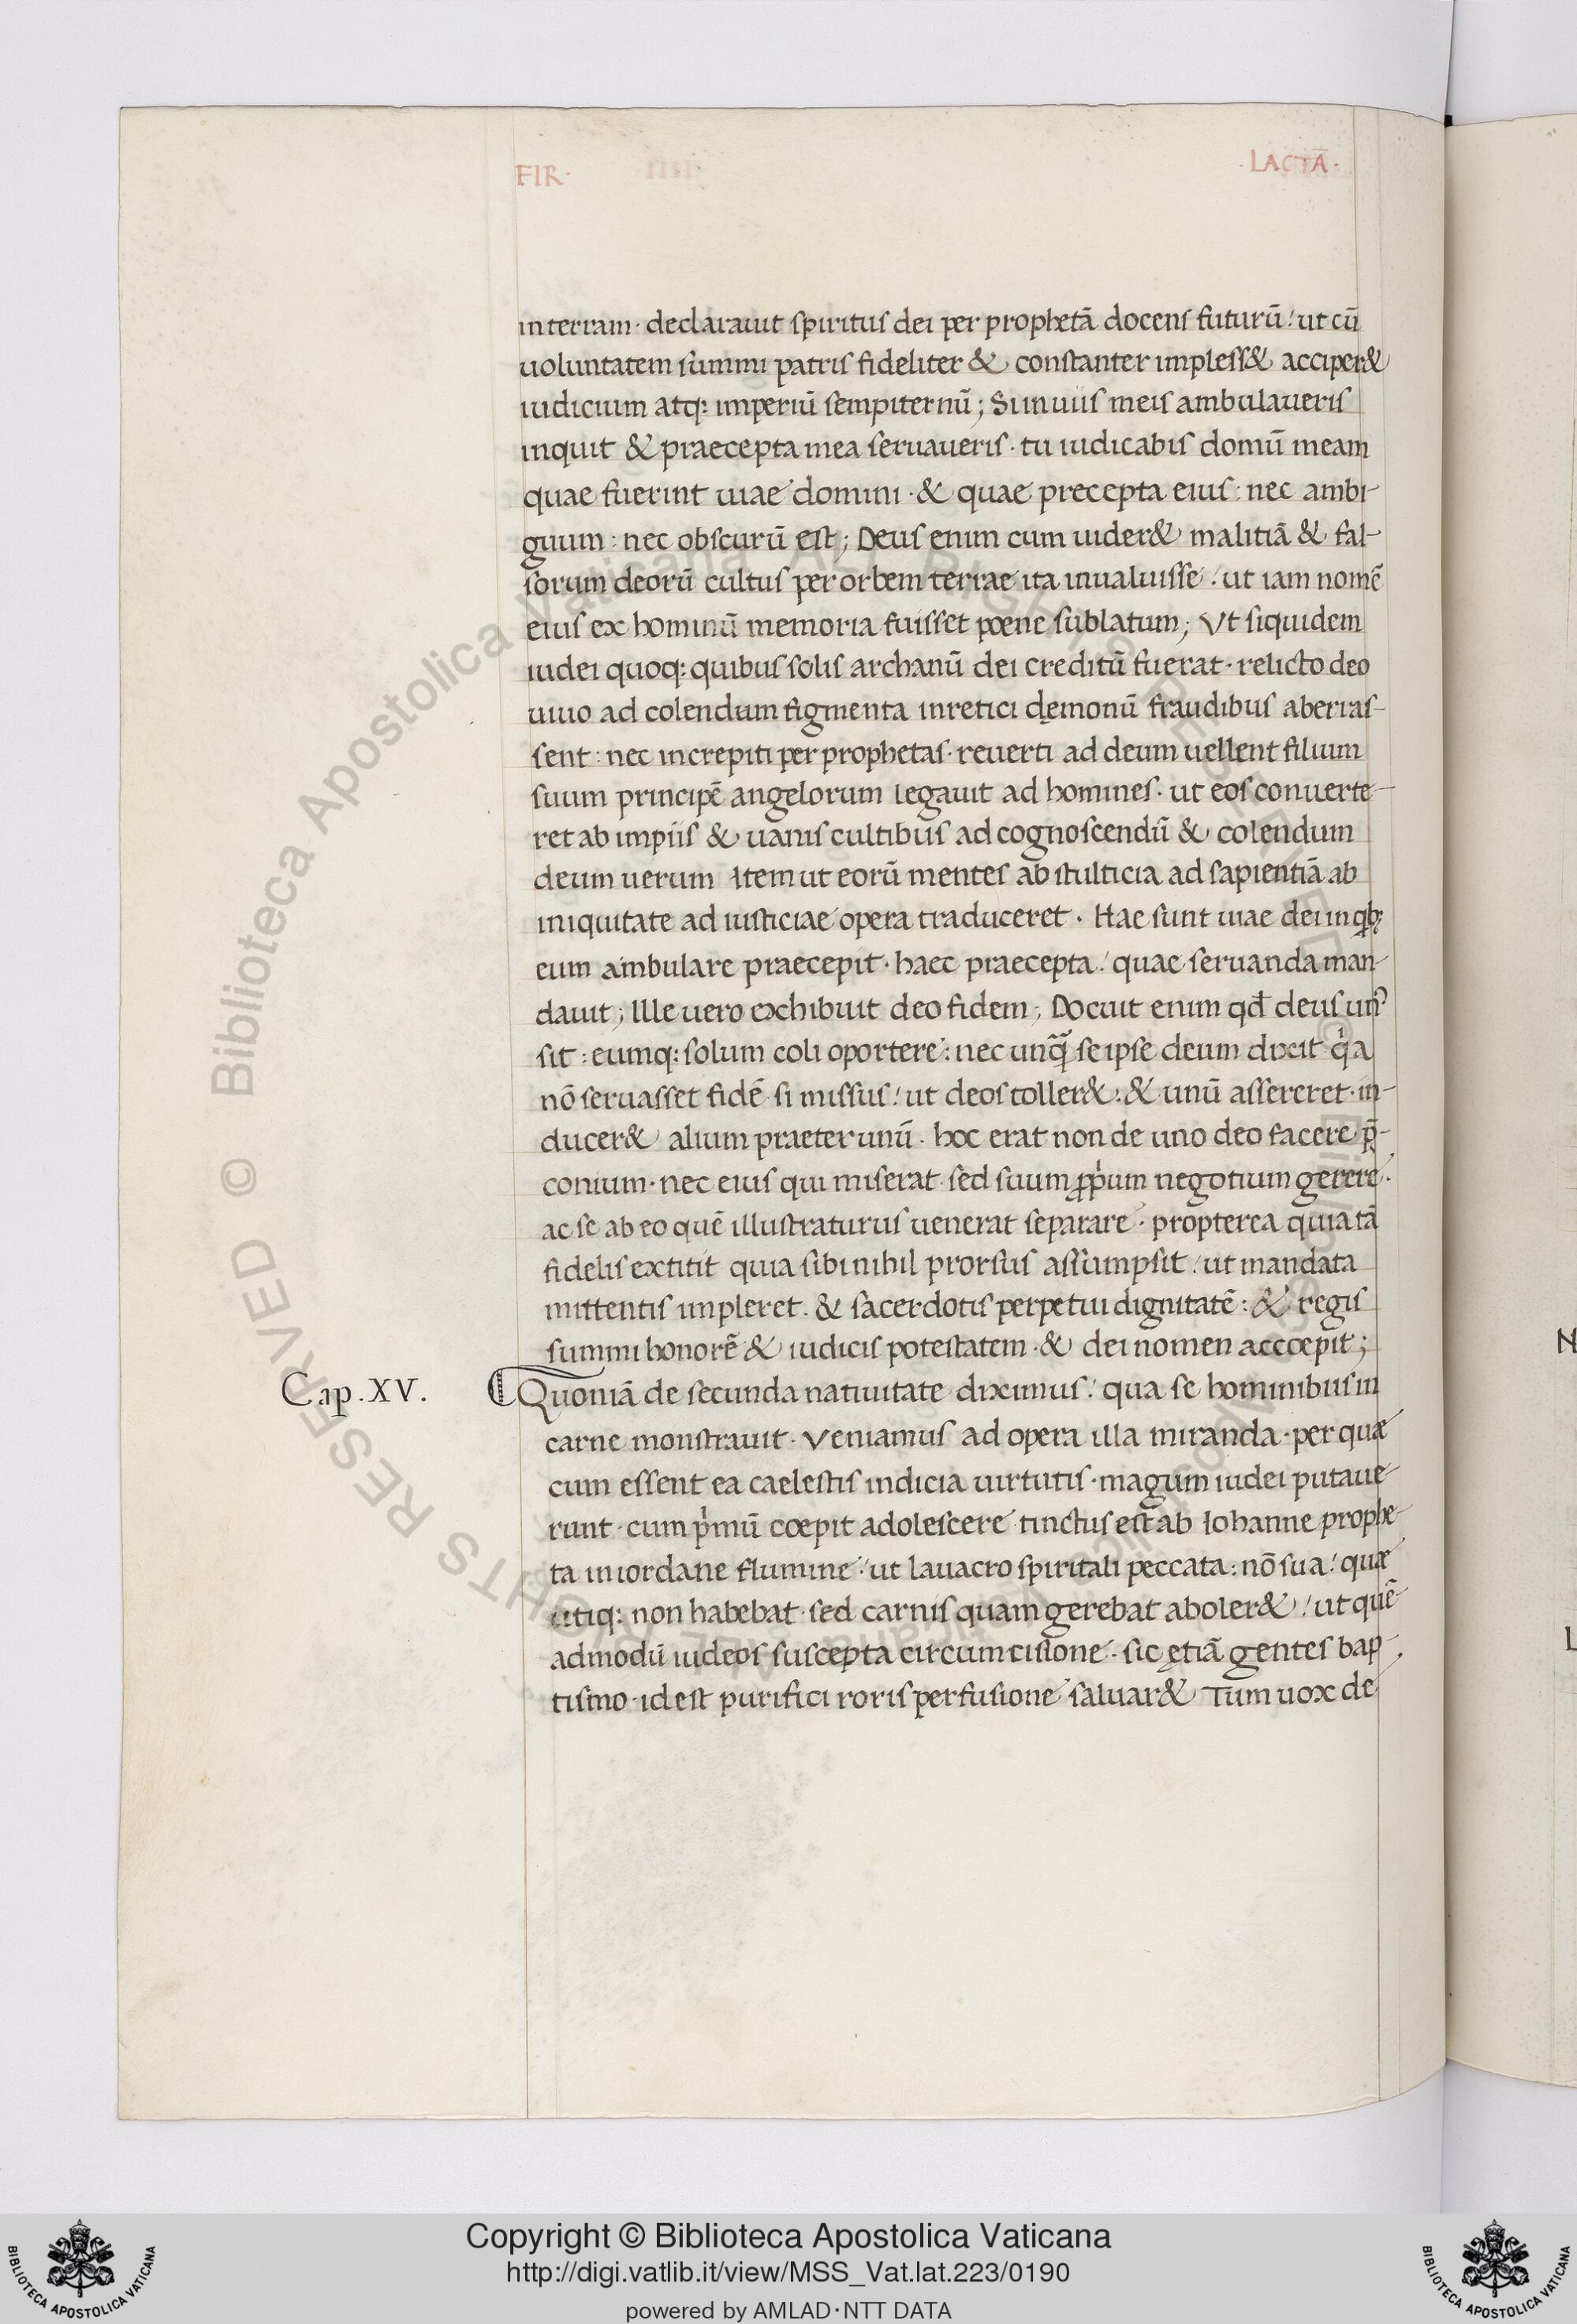 FIR· ·LACTÃ·
in terram· declarauit spiritus dei per prophetã docens futurũ! ut cũ
uoluntatem summi patris fideliter & constanter impless& acciper&
iudicium atq: imperiũ sempiternũ; Si in uiis meis ambulaueris
inquit & praecepta mea seruaueris· tu iudicabis domũ meam
quae fuerint uiae domini· & quae precepta eius: nec ambi-
guum: nec obscurũ est; Deus enim cum uider& malitiã & fal-
sorum deorũ cultus per orbem terrae ita inualuisse! ut iam nomẽ
eius ex hominũ memoria fuisset poene sublatum; Vt siquidem
iudei quoq: quibus solis archanũ dei creditũ fuerat· relicto deo
uiuo ad colendum figmenta inretici dęmonũ fraudibus aberras-
sent: nec increpiti per prophetas· reuerti ad deum uellent filium
suum principẽ angelorum legauit ad homines· ut eos conuerte-
ret ab impiis & uanis cultibus ad cognoscendũ & colendum
deum uerum Item ut eorũ mentes ab stulticia ad sapientiã ab
iniquitate ad iusticiae opera traduceret· Hae sunt uiae dei in qb;
eum ambulare praecepit· haec praecepta! quae seruanda man-
dauit; Ille uero exchibuit deo fidem; Docuit enim qd̃ deus un⁹
sit: eumq: solum coli oportere: nec unq̃ se ipse deum dixit qͥa
nõ seruasset fidẽ· si missus! ut deos toller&: & unũ assereret· in-
ducer& alium praeter unũ· hoc erat non de uno deo facere p̃-
conium· nec eius qui miserat· sed suum ꝓpͥum negotium gerere·
ac se ab eo quẽ illustraturus uenerat separare· propterea quia tã
fidelis extitit quia sibi nihil prorsus assumpsit! ut mandata
mittentis impleret· & sacerdotis perpetui dignitatẽ: & regis
summi honorẽ & iudicis potestatem· & dei nomen accoepit;
Cap. XV. Quoniã de secunda natiuitate diximus! qua se hominibus in
carne monstrauit· Veniamus ad opera illa miranda· per quæ
cum essent ea caelestis indicia uirtutis· magum iudei putaue-
runt· cum pͥmũ coepit adolescere tinctus est ab Iohanne prophe-
ta in iordane flumine! ut lauacro spiritali peccata: nõ sua! quæ
utiq: non habebat· sed carnis quam gerebat aboler&! ut quẽ-
admodũ iudeos suscepta circumcisione· sic ętiã gentes bap-
tismo· id est purifici roris perfusione saluar& Tum uox de
© Biblioteca Apostolica Vaticana
Copyright © Biblioteca Apostolica Vaticana
http://digi.vatlib.it/view/MSS_Vat.lat.223/0190
powered by AMLAD·NTT DATA
BIBLIOTECA APOSTOLICA VATICANA
BIBLIOTECA APOSTOLICA VATICANA